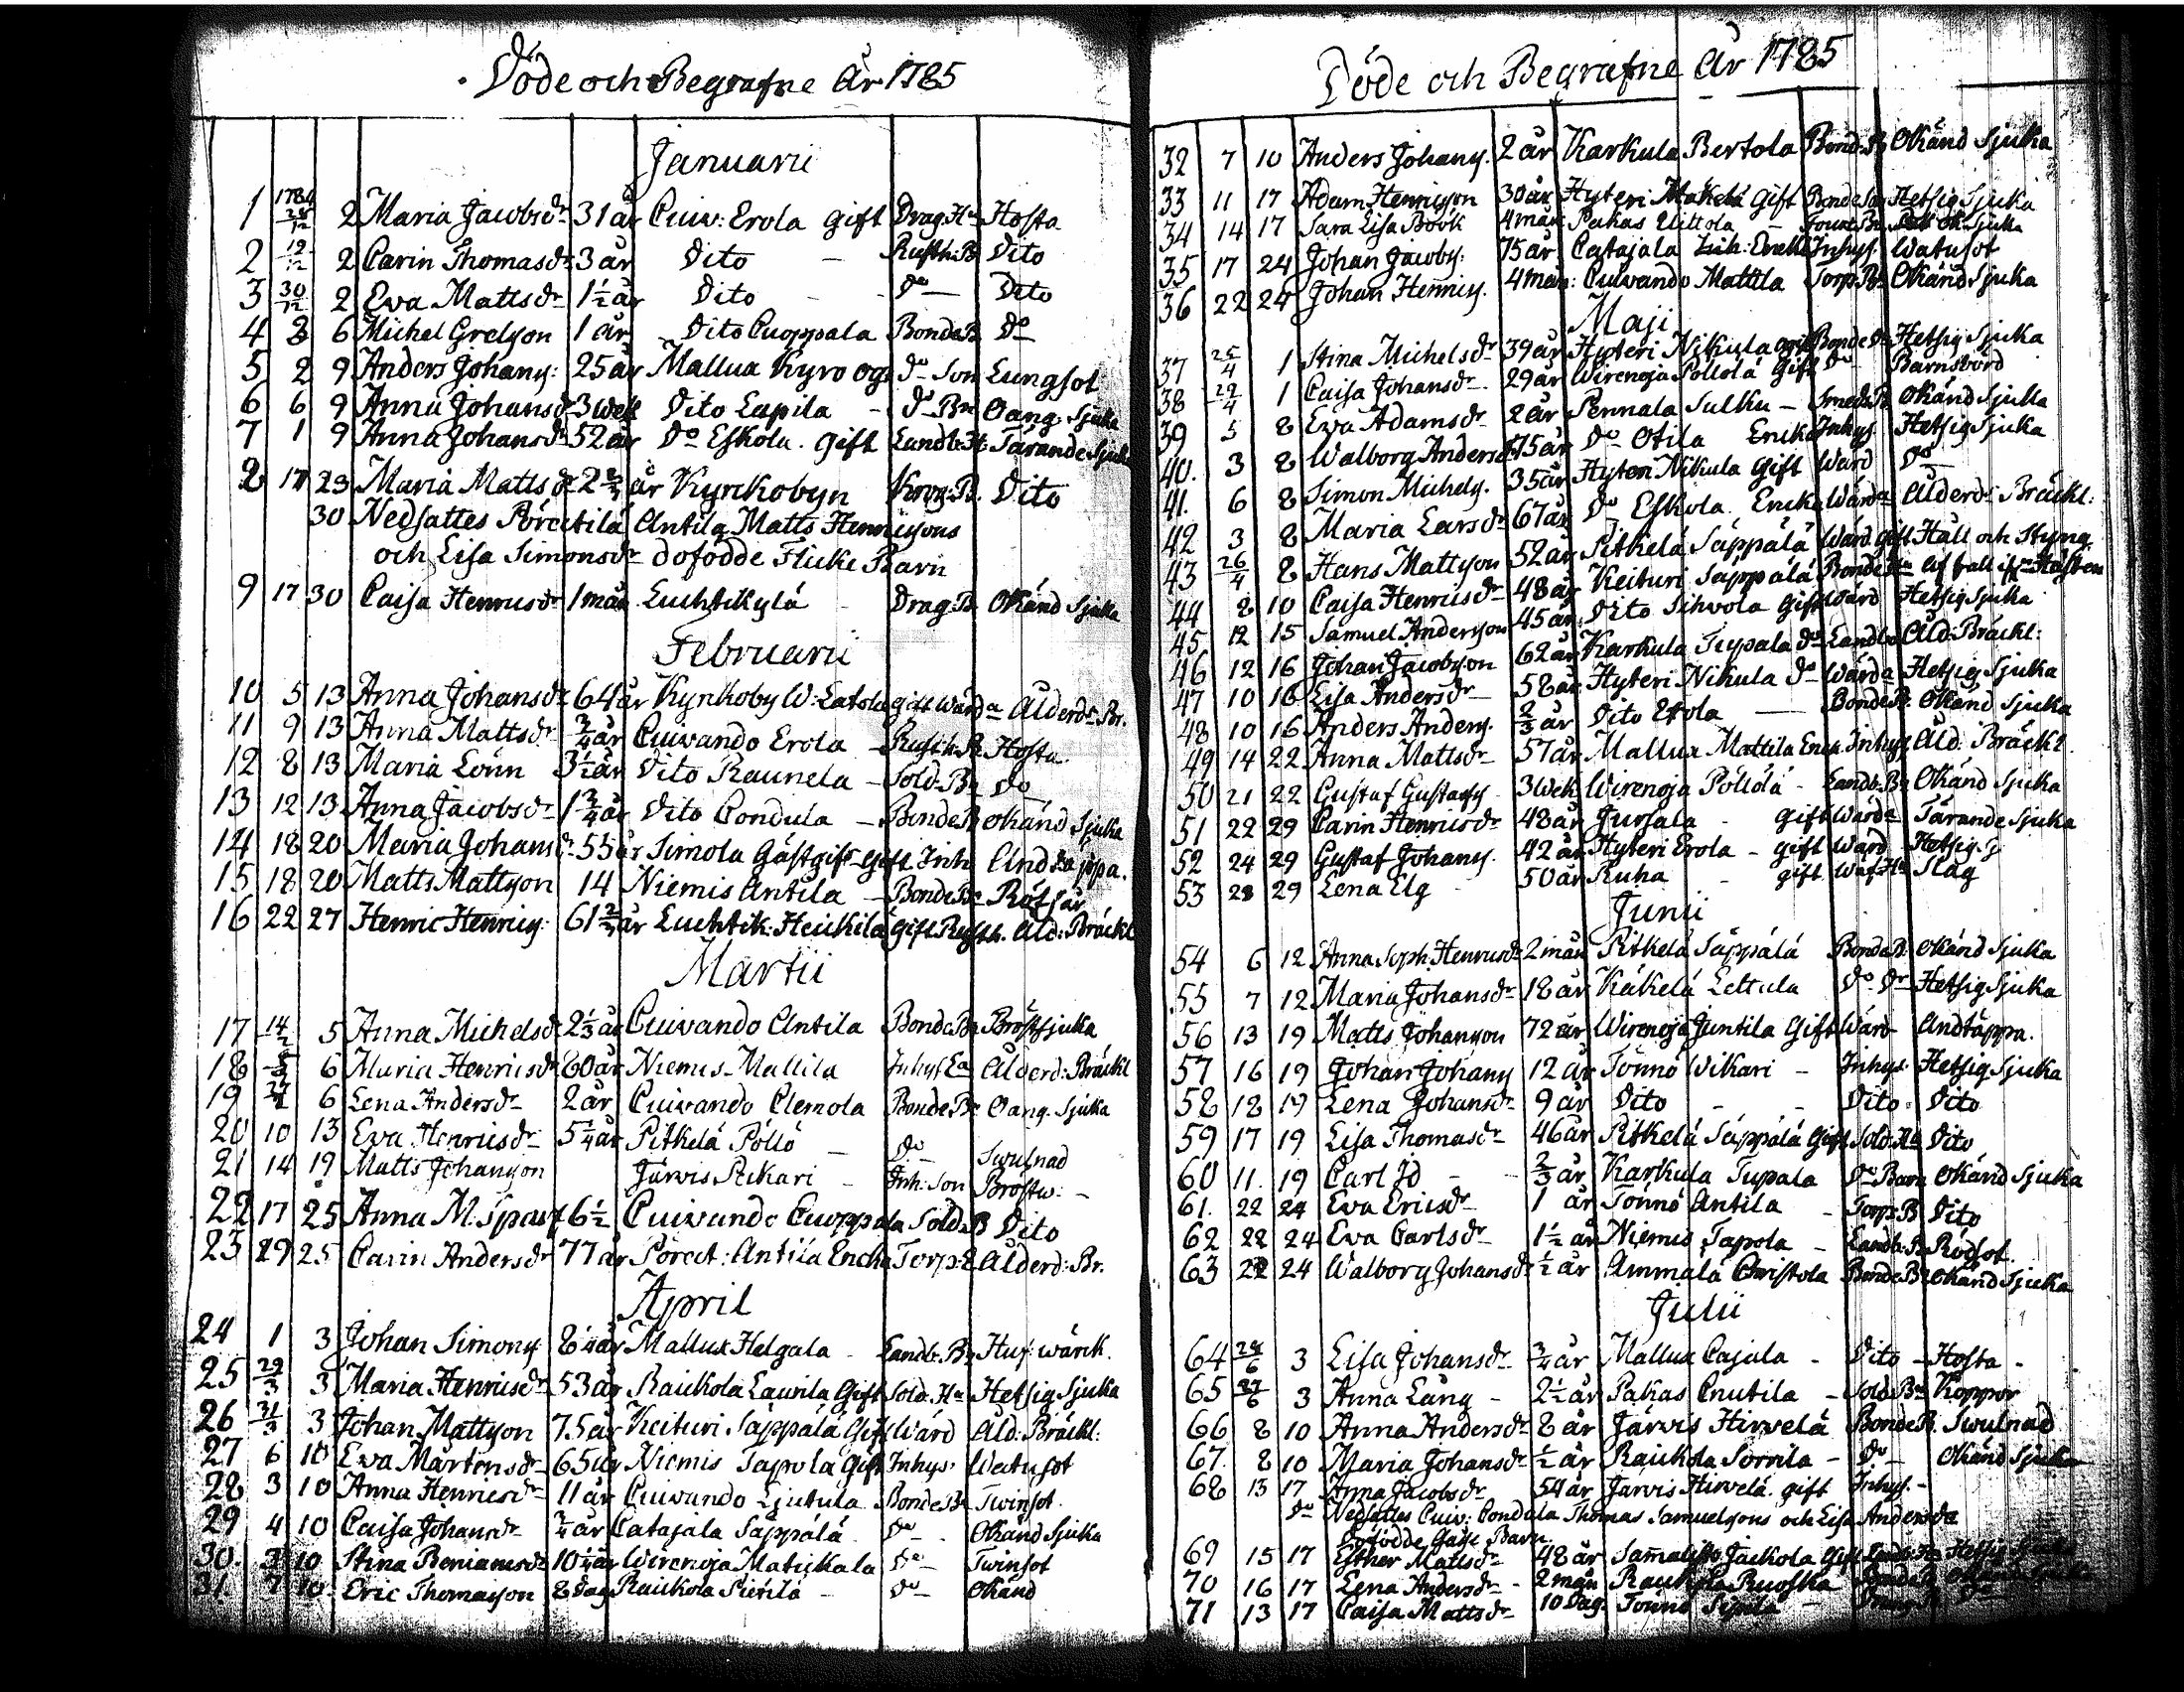 Döde och Begrafne År 1785
Januarii
1 1784 28/12 2 Maria Jacobsdr 31 år Cuiv: Erola gift Drag. Hu Hosta
2 19/12 2 Carin Thomasdr 3 år Dito - Rusth. B Dito
3 30/12 2 Eva Mattsdr 1½ år Dito - Do Dito
4 8 6 Michel Grelsson 1 år Dito Cuoppala Bonde B Do
5 2 9 Anders Johanss: 25 år Mallua Kyro og: do Son Lungsot
6 6 9 Anna Johansdr 3 wek Dito Lapila - do Bn Oang. Sjuka
7 1 9 Anna Johansdr 52 år Do Eskola. Gift Landb. H: Tärande Sjuka
8 17 23 Maria Mattsdr 2 år Kyrckobyn Krog. B. Dito
30 Nedsattes Porcitilä Antila Matts Henricssons
och Lisa Simonsdr dofödde Flicke Barn
9 17 30 Caisa Henricsdr 1 mån Luchtikylä - Drag. B. Okänd Sjuka
Februarii
10 5 13 Anna Johansdr 64 år Kyrkoby W: Latola gift Wärda Ålderd: Br.
11 9 13 Anna Mattsdr ¾ år Cuivando Erola - Rusth. B Hosta
12 8 13 Maria Lönn 3½ år Dito Raunela - Sold. Bn Do
13 12 13 Anna Jacobsdr 1¾ år Dito Condula - Bonde B Okänd Sjuka
14 18 20 Maria Johansdr 55 år Simola Gästgifv. Gift Inh. Andtäppa.
15 18 20 Matts Mattsson 14 Niemis Antila - Bonde Bn Rötsår
16 22 27 Henric Henrics: 61 år Luchtik: Heickilä gift Rusth. Åld: Bräckl
Martii
17 14/2 5 Anna Michelsdr 2⅓ år Cuivando Antila Bonde Bn Bröstsjuka
18 6 Maria Henricsdr 80 år Niemis Mallila Inhys Ea Ålderd: Bräckl
19 6 Lena Andersdr 2 år Cuivando Clemola Bonde Bn Oang. Sjuka
20 10 13 Eva Henricsdr 5¼ år Pitkelä Pöllö - do Swulnad
21 14 19 Matts Johansson Järvis Pickari - Inh: Son Bröstw: -
22 17 25 Anna M. Sparf 6½ Cuivando Cuoppala Sold B Dito
23 19 25 Carin Andersdr 77 år Porcit: Antila Encka Torp: E Ålderd: Br.
April
24 1 3 Johan Simons 8¼ år Mallua Helgala - Landb. Bn Huf: wärck.
25 29/3 3 Maria Henricsdr 53 år Raickola Laurila Gift Sold. Hu Hetsig Sjuka
26 31/3 3 Johan Mattsson 75 år Keituri Säppälä Gift Wärd Åld: Bräckl:
27 6 10 Eva Mårtensdr 65 år Niemis Tapola Gift Inhys. Watusot
28 3 10 Anna Henricsdr 11 år Cuivando Ljutula Bonde Bn Twinsot.
29 4 10 Caisa Johansdr ¾ år Catajala Säppälä do - Okänd Sjuka
30. 3 10 Stina Beniamsdr 10¼ år Wirenoja Matickala do - Twinsot
31. 7 10. Eric Thomasson 8 dag Raickola Pierilä - do - Okänd
Döde och Begrafne År 1785
32 7 10 Anders Johans. 2 år Karkula Bertola Bond. B Okänd Sjuka
33 11 17 Adam Henricson 30 år Hyteri Makelä Gift Bonde Son Hetsig Sjuka
34 14 17 Sara Lisa Böök 4 mån Pakas Uittola - Sjuka
35 17 24 Johan Jacobs: 75 år Catajala Enkl. Inhys. Watusot
36 22 24 Johan Henrics. 4 mån: Cuivando Mattila Torp. Bn Okänd Sjuka
Maji
37 25/4 1 Stina Michelsdr 39 år Hyteri Nikula gift Bonde Hetsig Sjuka
38 29/4 1 Caisa Johansdr 29 år Wirenoja Pöllölä Gift Do Barnsbörd
39 5 8 Eva Adamsdr 2 år Pennala Sulku - Smeds B Okänd Sjuka
40. 3 8 Walborg Andersdr 75 år Do Otila Encka Inhys. Hetsig Sjuka
41. 6 8 Simon Michels. 35 år Hyteri Nikula Gift Wärd Do
42 3 8 Maria Larsdr 67 år Do Eskola Encka Wärda Ålderd: Bräckl:
43 26/4 8 Hans Mattsson 52 år Pitkelä Säppälä Wärd. gift Håll och Styng
44 8 10 Caisa Henricsdr 48 år Keituri Säppälä Bonde Hu Af fall ifrån Hästen
45 12 15 Samuel Andersson 45 år Dito Sihvola Gift Wärd Hetsig Sjuka
46 12 16 Johan Jacobson 62 år Karkula Tupala Do Landb. Åld: Bräckl:
47 10 16 Lisa Andersdr 58 år Hyteri Nikula Do Wärda Hetsig Sjuka
48 10 16 Anders Anders. ⅔ år Dito Erola Bonde B. Okänd Sjuka
49 14 22 Anna Mattsdr 57 år Mallua Mattila Enck. Inhys Åld: Bräckl
50 21 22 Gustaf Gustafss 3 wek Wirenoja Pöllölä - Landb. Bn Okänd Sjuka
51 22 29 Carin Henricsdr 48 år Jursala - gift Wärda Tärande Sjuka
52 24 29 Gustaf Johans. 42 år Hyteri Erola - gift Wärd Hetsig. S
53 28 29 Lena Elg 50 år Ruha - gift Slag
Junii
54 6 12 Anna Soph. Henricsdr 2 mån Pitkelä Säppälä Bonde B. Okänd Sjuka
55 7 12 Maria Johansdr 18 år Käkelä Lettula Do Dr Hetsig Sjuka
56 13 19 Matts Johansson 72 år Wirenoja Juntila Gift Wärd Andtäppa.
57 16 19 Johan Johans 12 år Tönnö Wikari - Inhys. Hetsig Sjuka
58 18 19 Lena Johansdr 9 år Dito - - Dito Dito
59 17 19 Lisa Thomasdr 46 år Pitkelä Säppälä Gift Sold. Hu Dito
60 11. 19 Carl - ⅔ år Karkula Tupala Do Barn Okänd Sjuka
61. 22 24 Eva Ericsdr 1 år Tönnö Antila - Torp: B Dito
62 22 24 Eva Carlsdr 1½ år Niemis Tapola - Landb. B Rödsot.
63 22 24 Walborg Johansdr ½ år Ammälä Christola Bonde Bn Okänd Sjuka
Julii
64 28/6 3 Lisa Johansdr ¾ år Mallua Cajala - Dito - Hosta -
65 27/6 3 Anna Läng - 2½ år Pakas Cnutila - Sold. Bn Koppor
66 8 10 Anna Andersdr 8 år Järvis Hirvelä Bonde B. Swulnad
67. 8 10 Maria Johansdr ½ år Raickola Sorrila - do - Okänd Sjuka
68 13 17 Anna Jacobsdr 54 år Järvis Hirvelä gift Inhys. -
Do Nedsattes Cuiv: Condula Thomas Samuelssons och Lisa Andersdr
Dofödde Gåsse Barn
69 15 17 Esther Mattsdr 48 år Sammalisto Jackola Gift
70 16 17 Lena Andersdr - 2 mån Raickola Ruoska
71 13 17 Caisa Mattsdr 10 dag. Tönnö Sipilä -